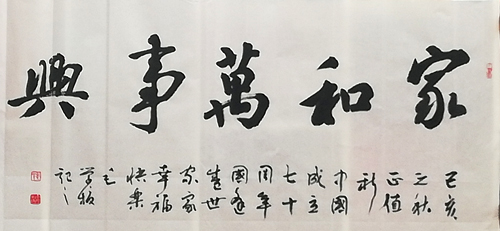 家和萬事興
己亥
之秋
正值
新
中國
成立
七十
周年
國逢
盛世
家家
幸福
快樂
記之